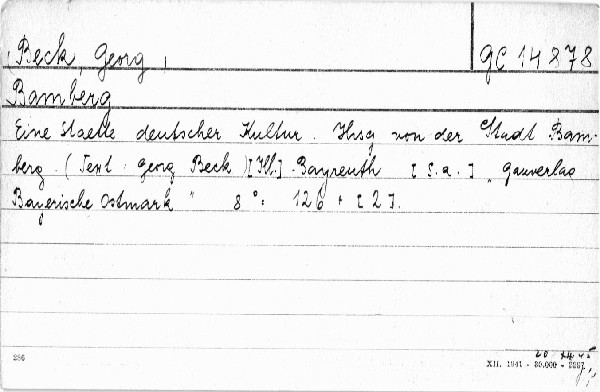 Beck, Georg,
GC 14878
Bamberg
Eine Staette deutscher Kultur. Hrsg von der Stadt Bam-
berg. (Text: Georg Beck) [Ill.] Bayreuth [S.a.] „Gauverlag
Bayerische Ostmark" 8°: 126 + [2].
286
XII. 1941 - 30.000 - 2267